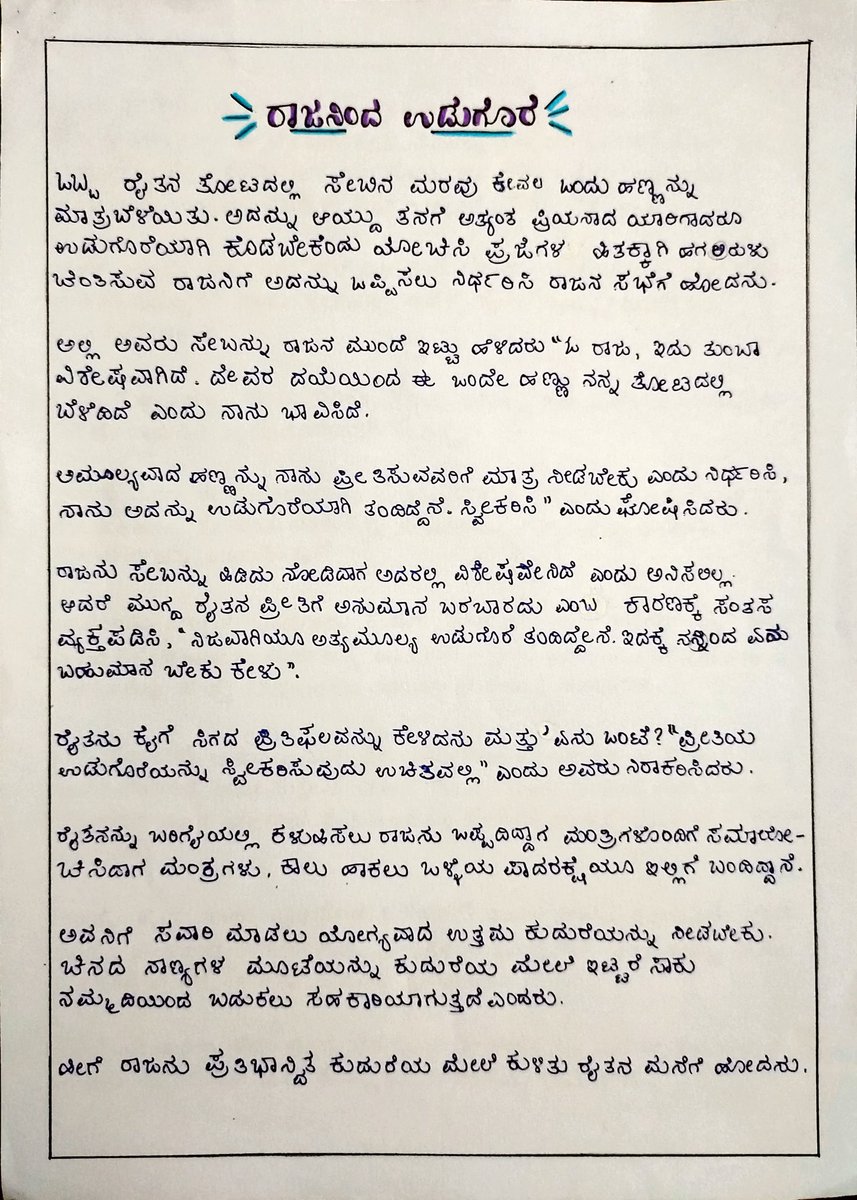 ರಾಜನಿಂದ ಉಡುಗೊರೆ
ಒಬ್ಬ ರೈತನ ತೋಟದಲ್ಲಿ ಸೇಬಿನ ಮರವು ಕೇವಲ ಒಂದು ಹಣ್ಣನ್ನು
ಮಾತ್ರಬೆಳೆಯಿತು. ಅದನ್ನು ಆಯ್ದು ತನಗೆ ಅತ್ಯಂತ ಪ್ರಿಯನಾದ ಯಾರಿಗಾದರೂ
ಉಡುಗೊರೆಯಾಗಿ ಕೊಡಬೇಕೆಂದು ಯೋಚಿಸಿ ಪ್ರಜೆಗಳ ಹಿತಕ್ಕಾಗಿ ಹಗಲಿರುಳು
ಚಿಂತಿಸುವ ರಾಜನಿಗೆ ಅದನ್ನು ಒಪ್ಪಿಸಲು ನಿರ್ಧರಿಸಿ ರಾಜನ ಸಭೆಗೆ ಹೋದನು.
ಅಲ್ಲಿ ಅವರು ಸೇಬನ್ನು ರಾಜನ ಮುಂದೆ ಇಟ್ಟು ಹೇಳಿದರು "ಓ ರಾಜ, ಇದು ತುಂಬಾ
ವಿಶೇಷವಾಗಿದೆ. ದೇವರ ದಯೆಯಿಂದ ಈ ಒಂದೇ ಹಣ್ಣು ನನ್ನ ತೋಟದಲ್ಲಿ
ಬೆಳೆದಿದೆ ಎಂದು ನಾನು ಭಾವಿಸಿದೆ.
ಅಮೂಲ್ಯವಾದ ಹಣ್ಣನ್ನು ನಾನು ಪ್ರೀತಿಸುವವರಿಗೆ ಮಾತ್ರ ನೀಡಬೇಕು ಎಂದು ನಿರ್ಧರಿಸಿ,
ನಾನು ಅದನ್ನು ಉಡುಗೊರೆಯಾಗಿ ತಂದಿದ್ದೇನೆ. ಸ್ವೀಕರಿಸಿ" ಎಂದು ಘೋಷಿಸಿದರು.
ರಾಜನು ಸೇಬನ್ನು ಹಿಡಿದು ನೋಡಿದಾಗ ಅದರಲ್ಲಿ ವಿಶೇಷವೇನಿದೆ ಎಂದು ಅನಿಸಲಿಲ್ಲ.
ಆದರೆ ಮುಗ್ಧ ರೈತನ ಪ್ರೀತಿಗೆ ಅನುಮಾನ ಬರಬಾರದು ಎಂಬ ಕಾರಣಕ್ಕೆ ಸಂತಸ
ವ್ಯಕ್ತಪಡಿಸಿ, "ನಿಜವಾಗಿಯೂ ಅತ್ಯಮೂಲ್ಯ ಉಡುಗೊರೆ ತಂದಿದ್ದೇನೆ. ಇದಕ್ಕೆ ನನ್ನಿಂದ ಏನು
ಬಹುಮಾನ ಬೇಕು ಕೇಳು".
ರೈತನು ಕೈಗೆ ಸಿಗದ ಪ್ರತಿಫಲವನ್ನು ಕೇಳಿದನು ಮತ್ತು 'ಏನು ಒಂಟೆ? "ಪ್ರೀತಿಯ
ಉಡುಗೊರೆಯನ್ನು ಸ್ವೀಕರಿಸುವುದು ಉಚಿತವಲ್ಲ" ಎಂದು ಅವರು ನಿರಾಕರಿಸಿದರು.
ರೈತನನ್ನು ಬರಿಗೈಯಲ್ಲಿ ಕಳುಹಿಸಲು ರಾಜನು ಒಪ್ಪದಿದ್ದಾಗ ಮಂತ್ರಿಗಳೊಂದಿಗೆ ಸಮಾಲೋ-
ಚಿಸಿದಾಗ ಮಂತ್ರಗಳು, ಕಾಲು ಹಾಕಲು ಒಳ್ಳೆಯ ಪಾದರಕ್ಷೆಯೂ ಇಲ್ಲಿಗೆ ಬಂದಿದ್ದಾನೆ.
ಅವನಿಗೆ ಸವಾರಿ ಮಾಡಲು ಯೋಗ್ಯವಾದ ಉತ್ತಮ ಕುದುರೆಯನ್ನು ನೀಡಬೇಕು.
ಚಿನದ ನಾಣ್ಯಗಳ ಮೂಟೆಯನ್ನು ಕುದುರೆಯ ಮೇಲೆ ಇಟ್ಟರೆ ಸಾಕು
ನೆಮ್ಮದಿಯಿಂದ ಬದುಕಲು ಸಹಕಾರಿಯಾಗುತ್ತದೆ ಎಂದರು.
ಹೀಗೆ ರಾಜನು ಪ್ರತಿಭಾನ್ವಿತ ಕುದುರೆಯ ಮೇಲೆ ಕುಳಿತು ರೈತನ ಮನೆಗೆ ಹೋದನು.